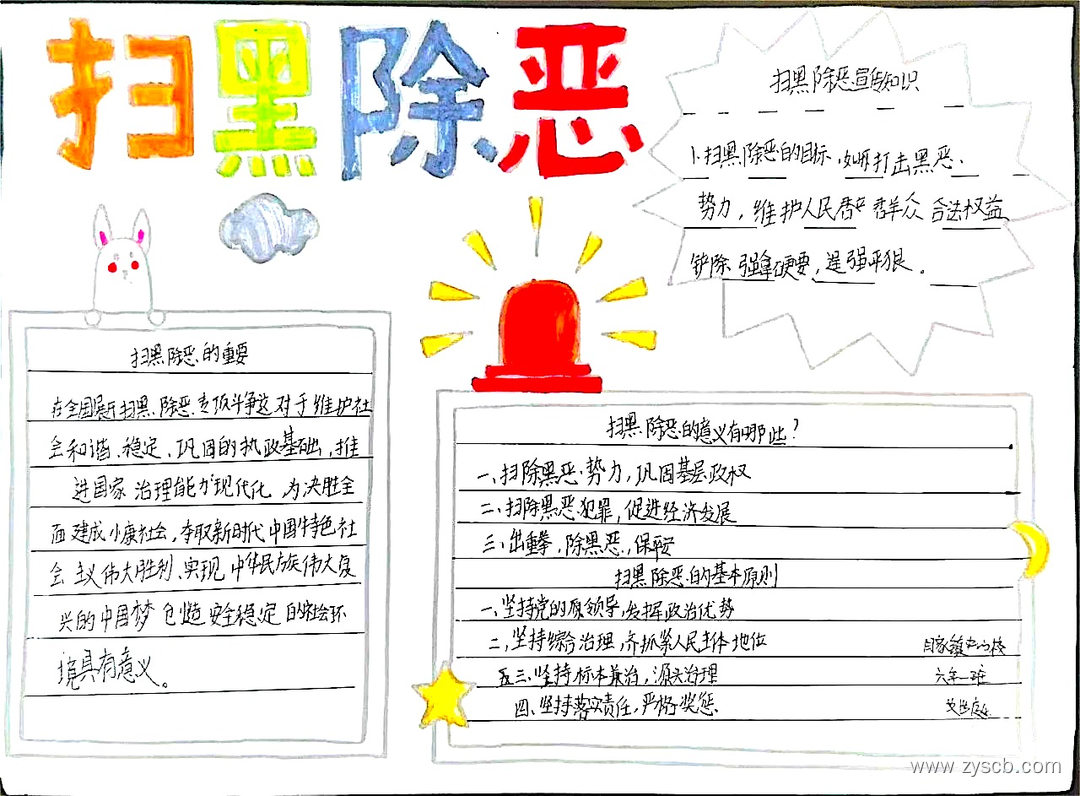 扫黑除恶
扫黑除恶宣传知识
1.扫黑除恶的目标,如所打击黑恶、
势力,维护人民群众合法权益
铲除强拿硬要,逞强平狠。
扫黑除恶的重要
在全国展开扫黑、除恶、专项斗争这对于维护社
会和谐、稳定、巩固的执政基础,推
进国家治理能力现代化为决胜全
面建成小康社会,夺取新时代中国特色社
会主义伟大胜利、实现中华民族伟大复
兴的中国梦创造安全稳定的社会环
境具有意义。
扫黑除恶的意义有哪些?
一、扫除黑恶势力,巩固基层政权
二、扫除黑恶犯罪,促进经济发展
三、出重拳,除黑恶,保平安
扫黑除恶的基本原则
一、坚持党的原领导,发挥政治优势
二,坚持综合治理,齐抓紧人民主体地位
三、坚持标本兼治,源头治理
四、坚持落实责任,严格奖惩
六年一班
www.zyscb.com